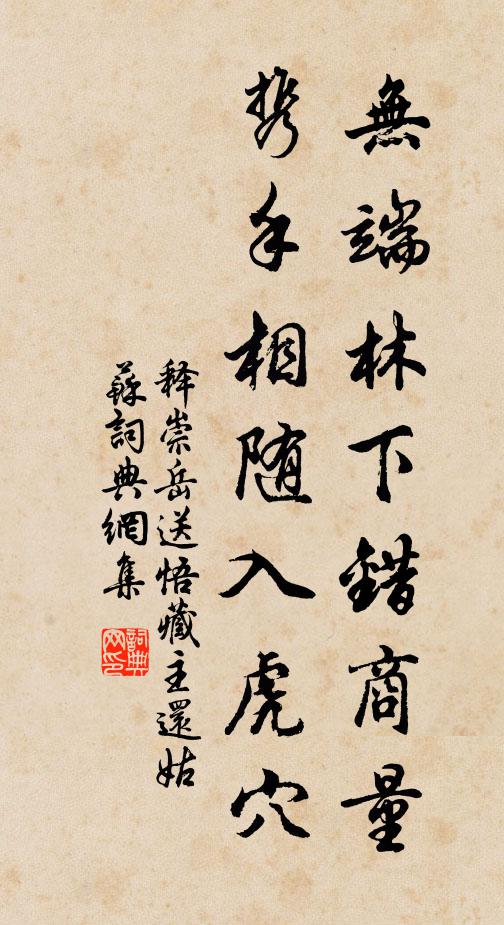 無端林下錯商量
携手相随入虎穴
释崇岳送悟藏主還姑
蘇詞典網集
詞典網印